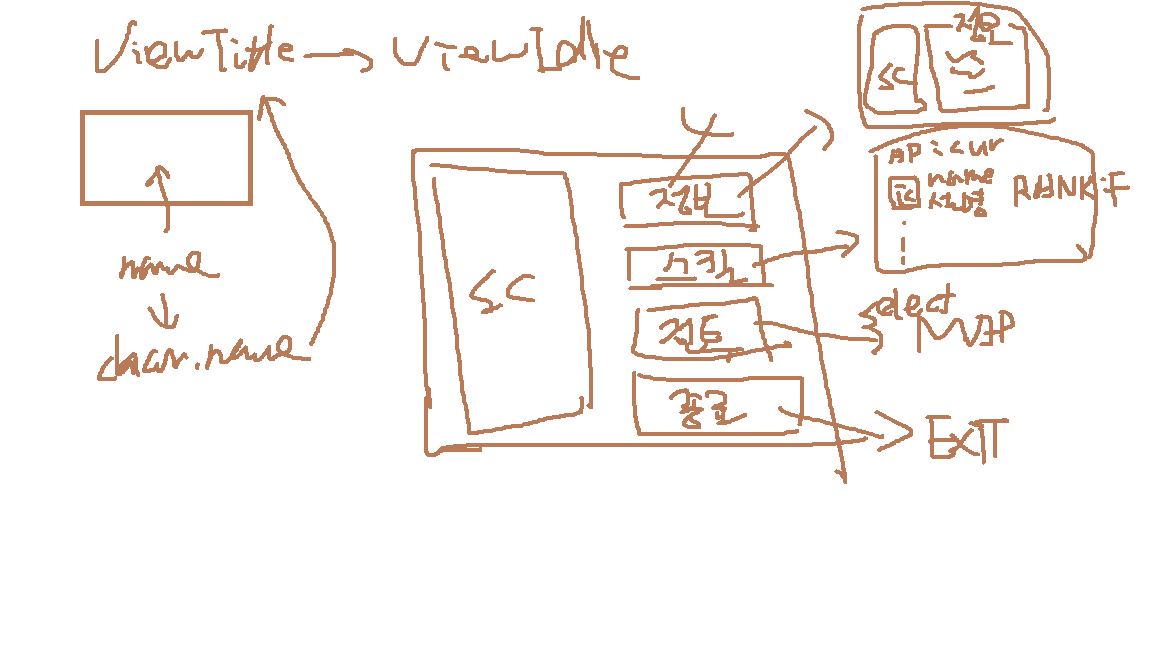 ViewTitle → ViewIdle
name
char.name
SC
정보
스킬
지도
종료
직업
SC
AP icur
ic
name
설명
RANK:F
select
MAP
EXIT